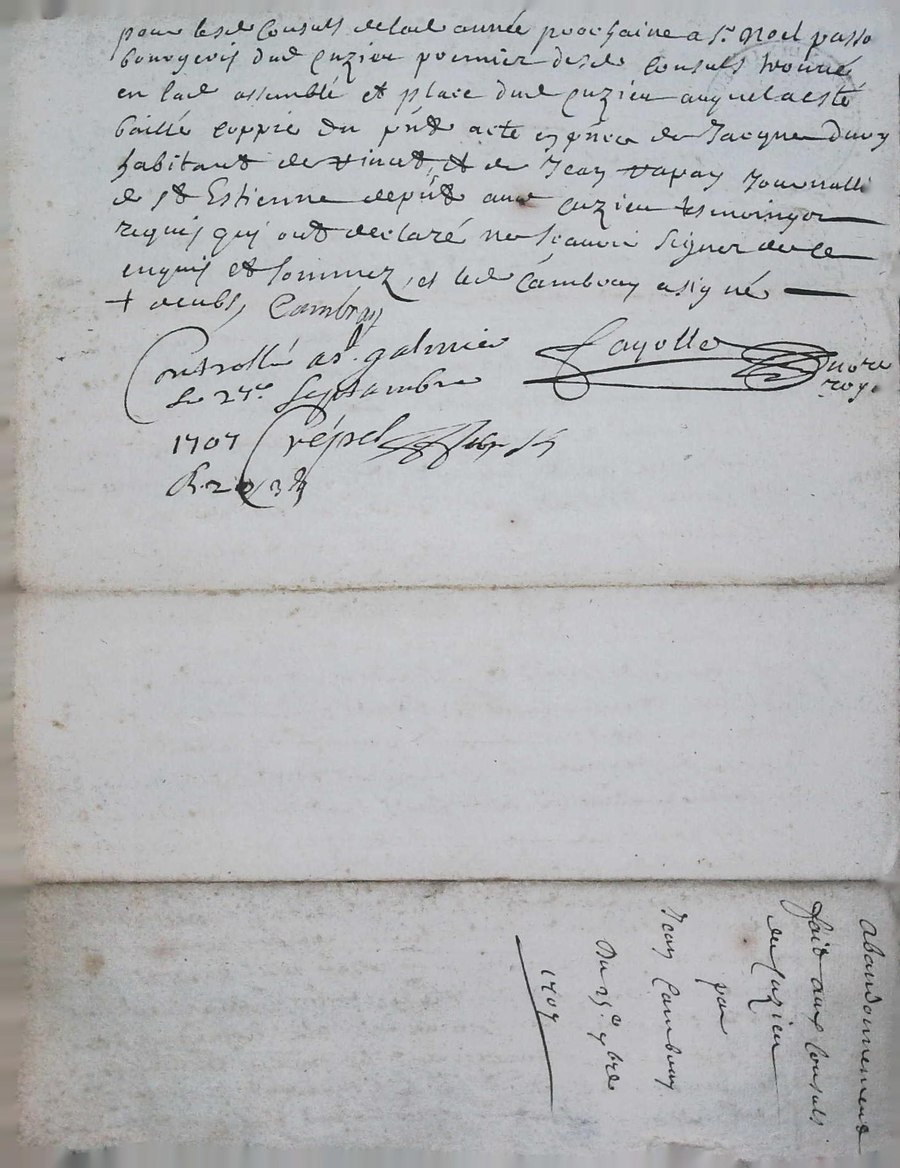 pour lesd consuls de lad année prochaine a Sr Noel
bourgeois dud Cuzieu premier desd consuls trouvé
en lad assemblé et place dud Cuzieu auquel a esté
baillé coppie du pnt acte en pnce de Jacque
habitant de et de Jean
de St Estienne deput aud Cuzieu tesmoingor
requis qui ont declaré ne scavoir signer de ce
enquis et sommez et led Cambray a signé
Cambray
Controllé a St galmier
Le 27me Septambre
1707 Crépet
R. 2
Fayolle
nore
roy.
abandonnement
faict aux Consuls
de Cuzieu
par
Jean Cambray
Du 25e 7bre
1707